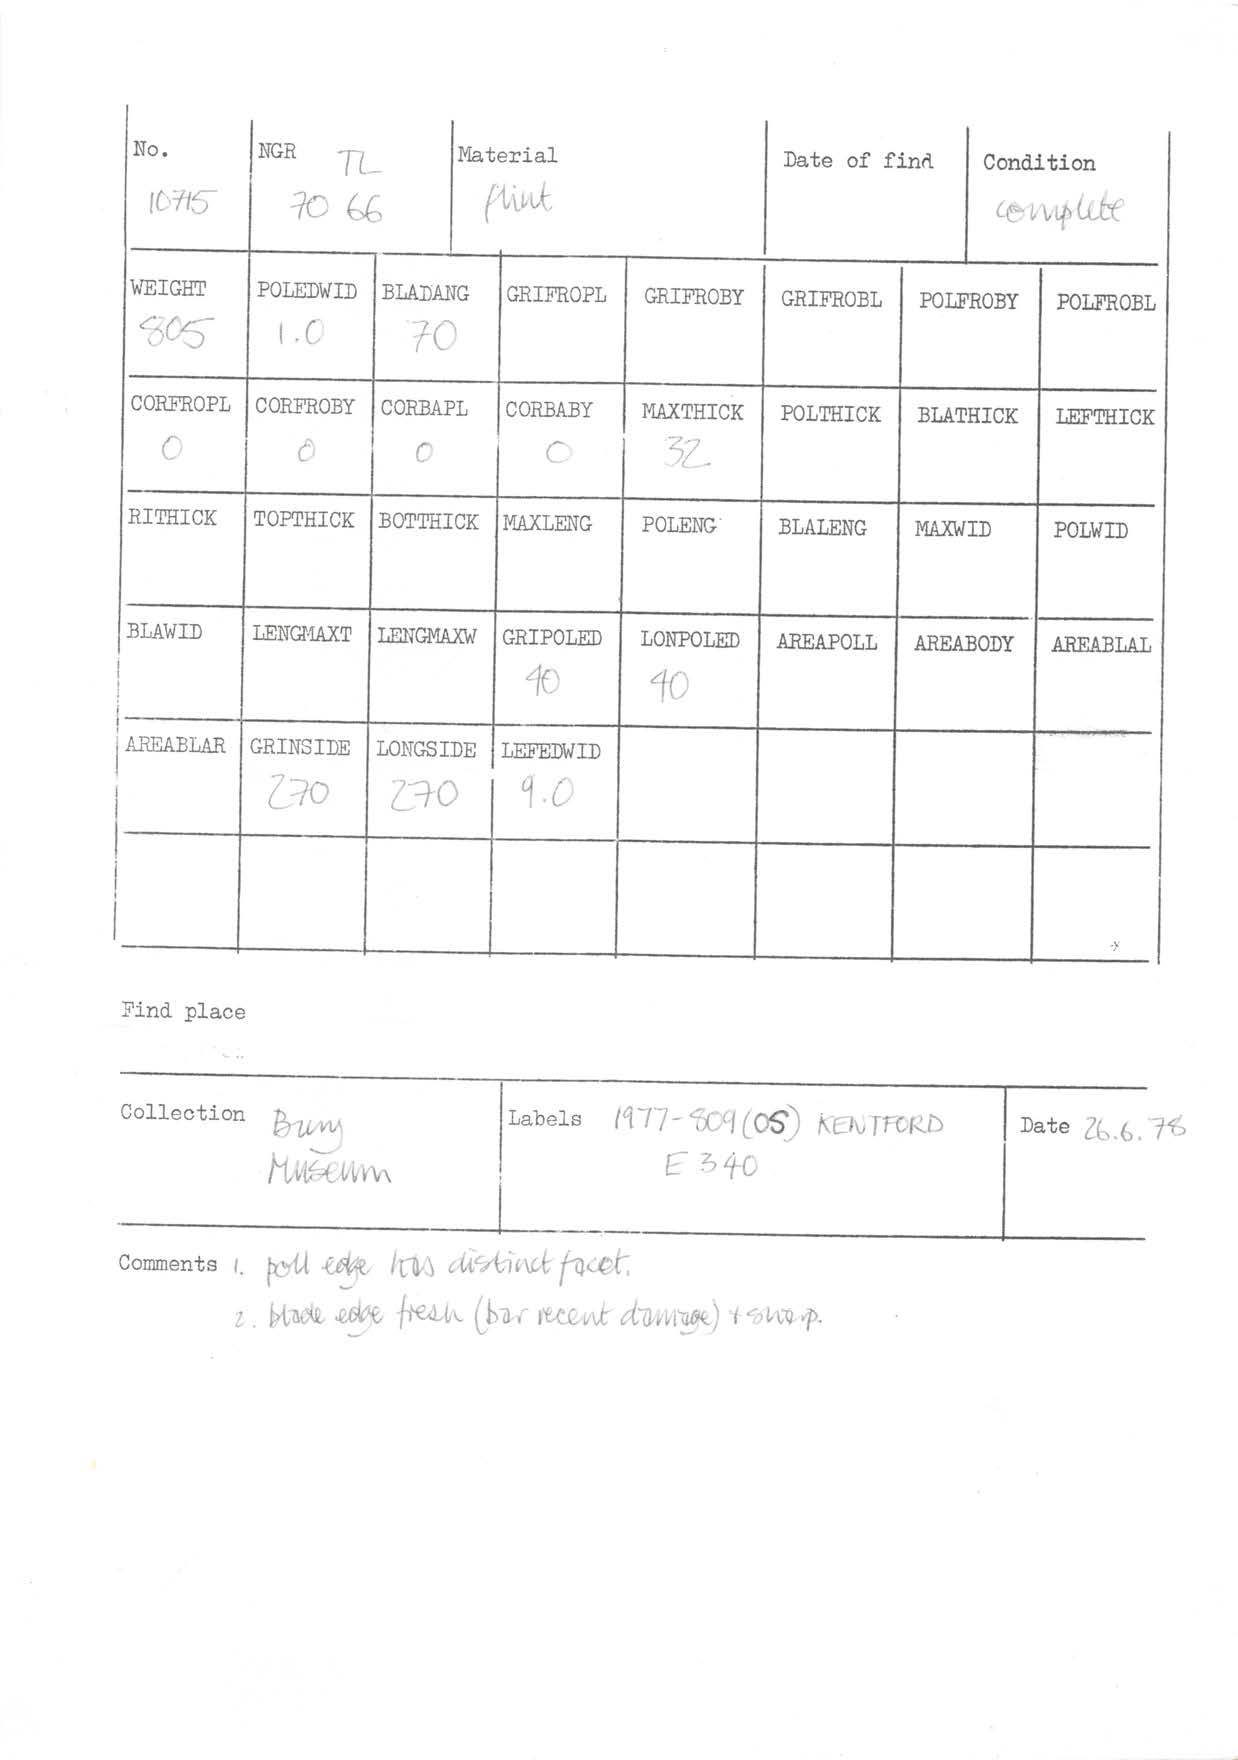 No. NGR TL Material Date of find Condition
10715 70 66 flint complete
WEIGHT POLEDWID BLADANG GRIFROPL GRIFROBY GRIFROBL POLFROBY POLFROBL
805 1.0 70
CORFROPL CORFROBY CORBAPL CORBABY MAXTHICK POLTHICK BLATHICK LEFTHICK
0 0 0 0 32
RITHICK TOPTHICK BOTTHICK MAXLENG POLENG BLALENG MAXWID POLWID
BLAWID LENGMAXT LENGMAXW GRIPOLED LONPOLED AREAPOLL AREABODY AREABLAL
40 40
AREABLAR GRINSIDE LONGSIDE LEFEDWID
270 270 9.0
Find place
Collection Bury Labels 1977-809(OS) KENTFORD Date 26.6.78
Museum E 340
Comments 1. poll edge has distinct facet.
2. blade edge fresh (bar recent damage) + sharp.